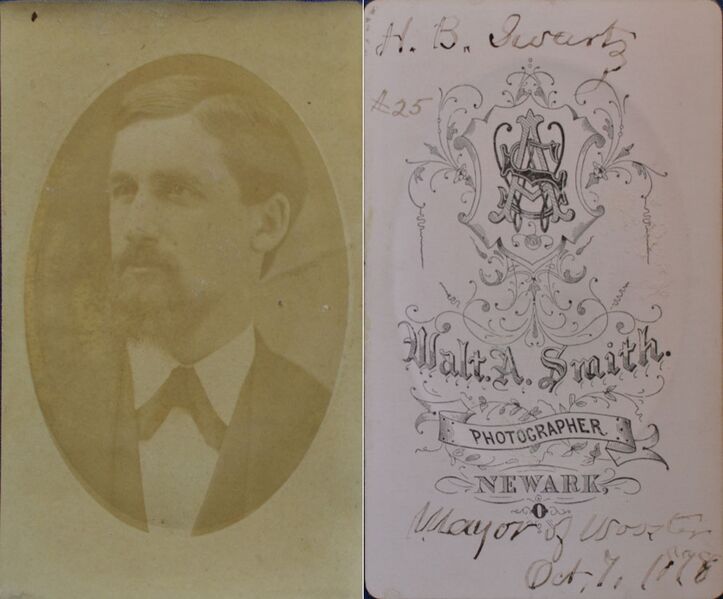 H. B. Swartz
A25
WAS
Walt. A. Smith.
PHOTOGRAPHER
NEWARK,
O
Mayor of Wooster
Oct, 7, 1878